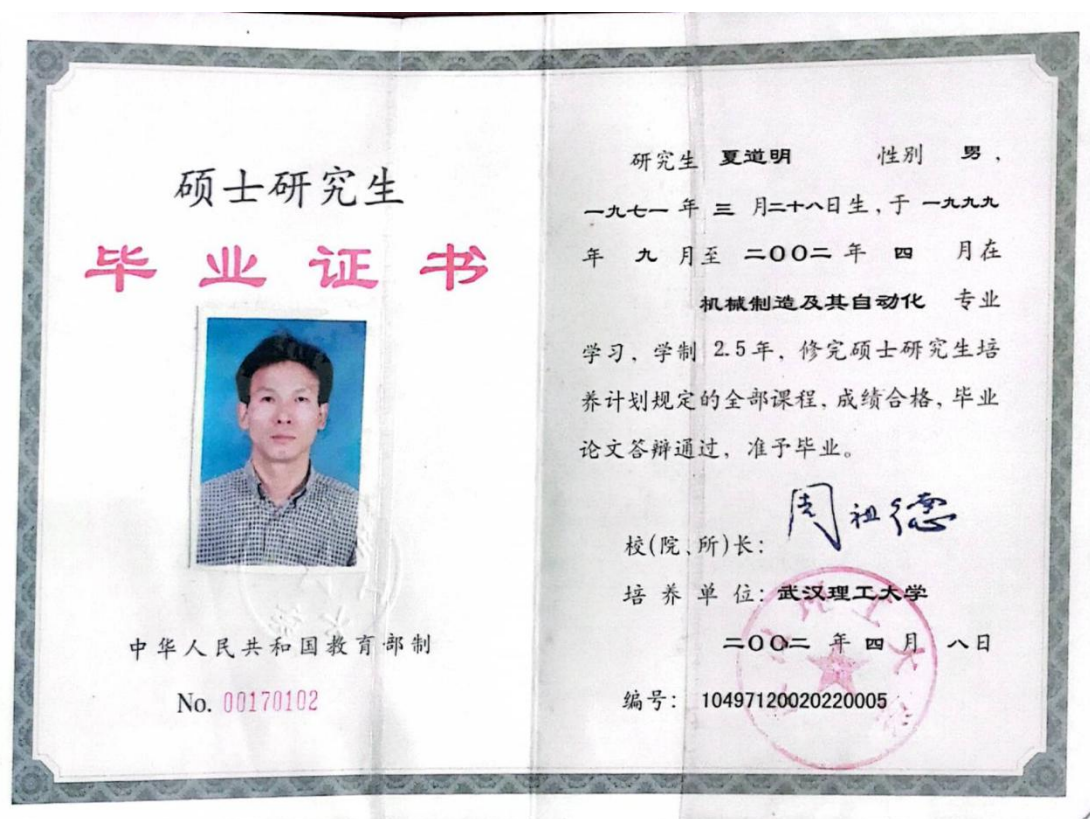 硕士研究生
毕业证书
中华人民共和国教育部制
No. 00170102
研究生 夏道明 性别 男，
一九七一年三月二十八日生，于一九九九
年九月至二〇〇二年四月在
机械制造及其自动化 专业
学习，学制2.5年，修完硕士研究生培
养计划规定的全部课程，成绩合格，毕业
论文答辩通过，准予毕业。
校(院、所)长：周祖德
培养单位：武汉理工大学
二〇〇二年四月八日
编号：10497120020220005